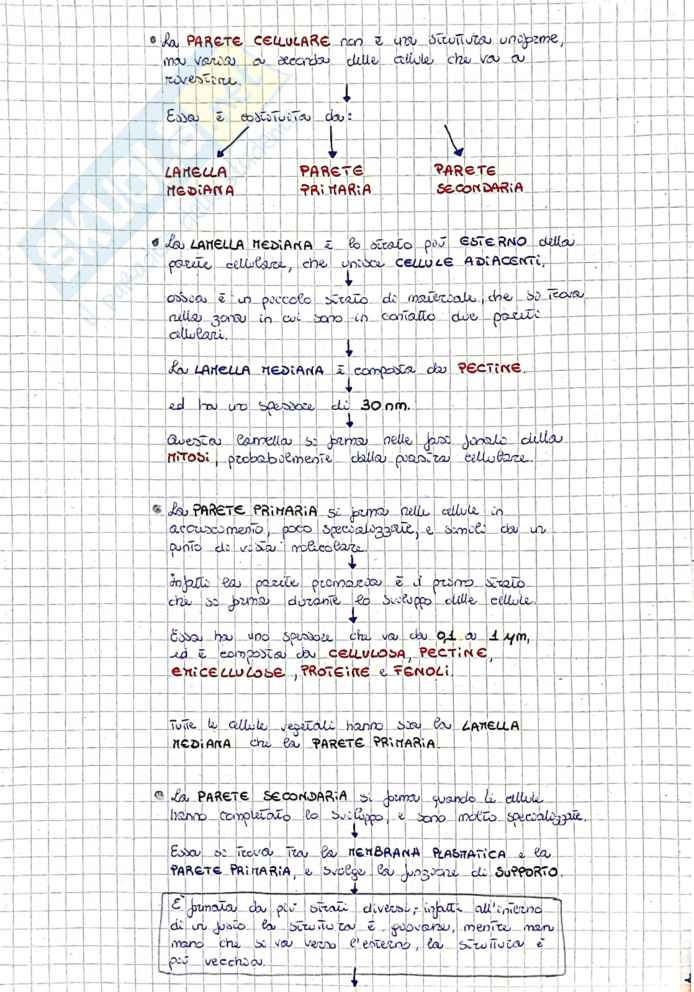 • La PARETE CELLULARE non è una struttura uniforme,
ma varia a seconda delle cellule che va a
rivestire.
Essa è costituita da:
LAMELLA MEDIANA
PARETE PRIMARIA
PARETE SECONDARIA
• La LAMELLA MEDIANA è lo strato più ESTERNO della
parete cellulare, che unisce CELLULE ADIACENTI,
ossia è un piccolo strato di materiale, che si trova
nella zona in cui sono in contatto due pareti
cellulari.
La LAMELLA MEDIANA è composta da PECTINE.
ed ha uno spessore di 30 nm.
Questa lamella si forma nelle fasi finali della
MITOSI, probabilmente dalla piastra cellulare.
• La PARETE PRIMARIA si forma nelle cellule in
accrescimento, poco specializzate, e simili da un
punto di vista molicolare.
Infatti la parete primaria è il primo strato
che si forma durante lo sviluppo delle cellule.
Essa ha uno spessore che va da 0,1 a 1 µm,
ed è composta da CELLULOSA, PECTINE,
EMICELLULOSE, PROTEINE e FENOLI.
Tutte le cellule vegetali hanno sia la LAMELLA
MEDIANA che la PARETE PRIMARIA.
• La PARETE SECONDARIA si forma quando le cellule
hanno completato lo sviluppo, e sono molto specializzate.
Essa si trova tra la MEMBRANA PLASMATICA e la
PARETE PRIMARIA, e svolge la funzione di SUPPORTO.
È formata da più strati diversi, infatti all'interno
di un fusto la struttura è giovane, mentre man
mano che si va verso l'esterno, la struttura è
più vecchia.
SKUOLA.net